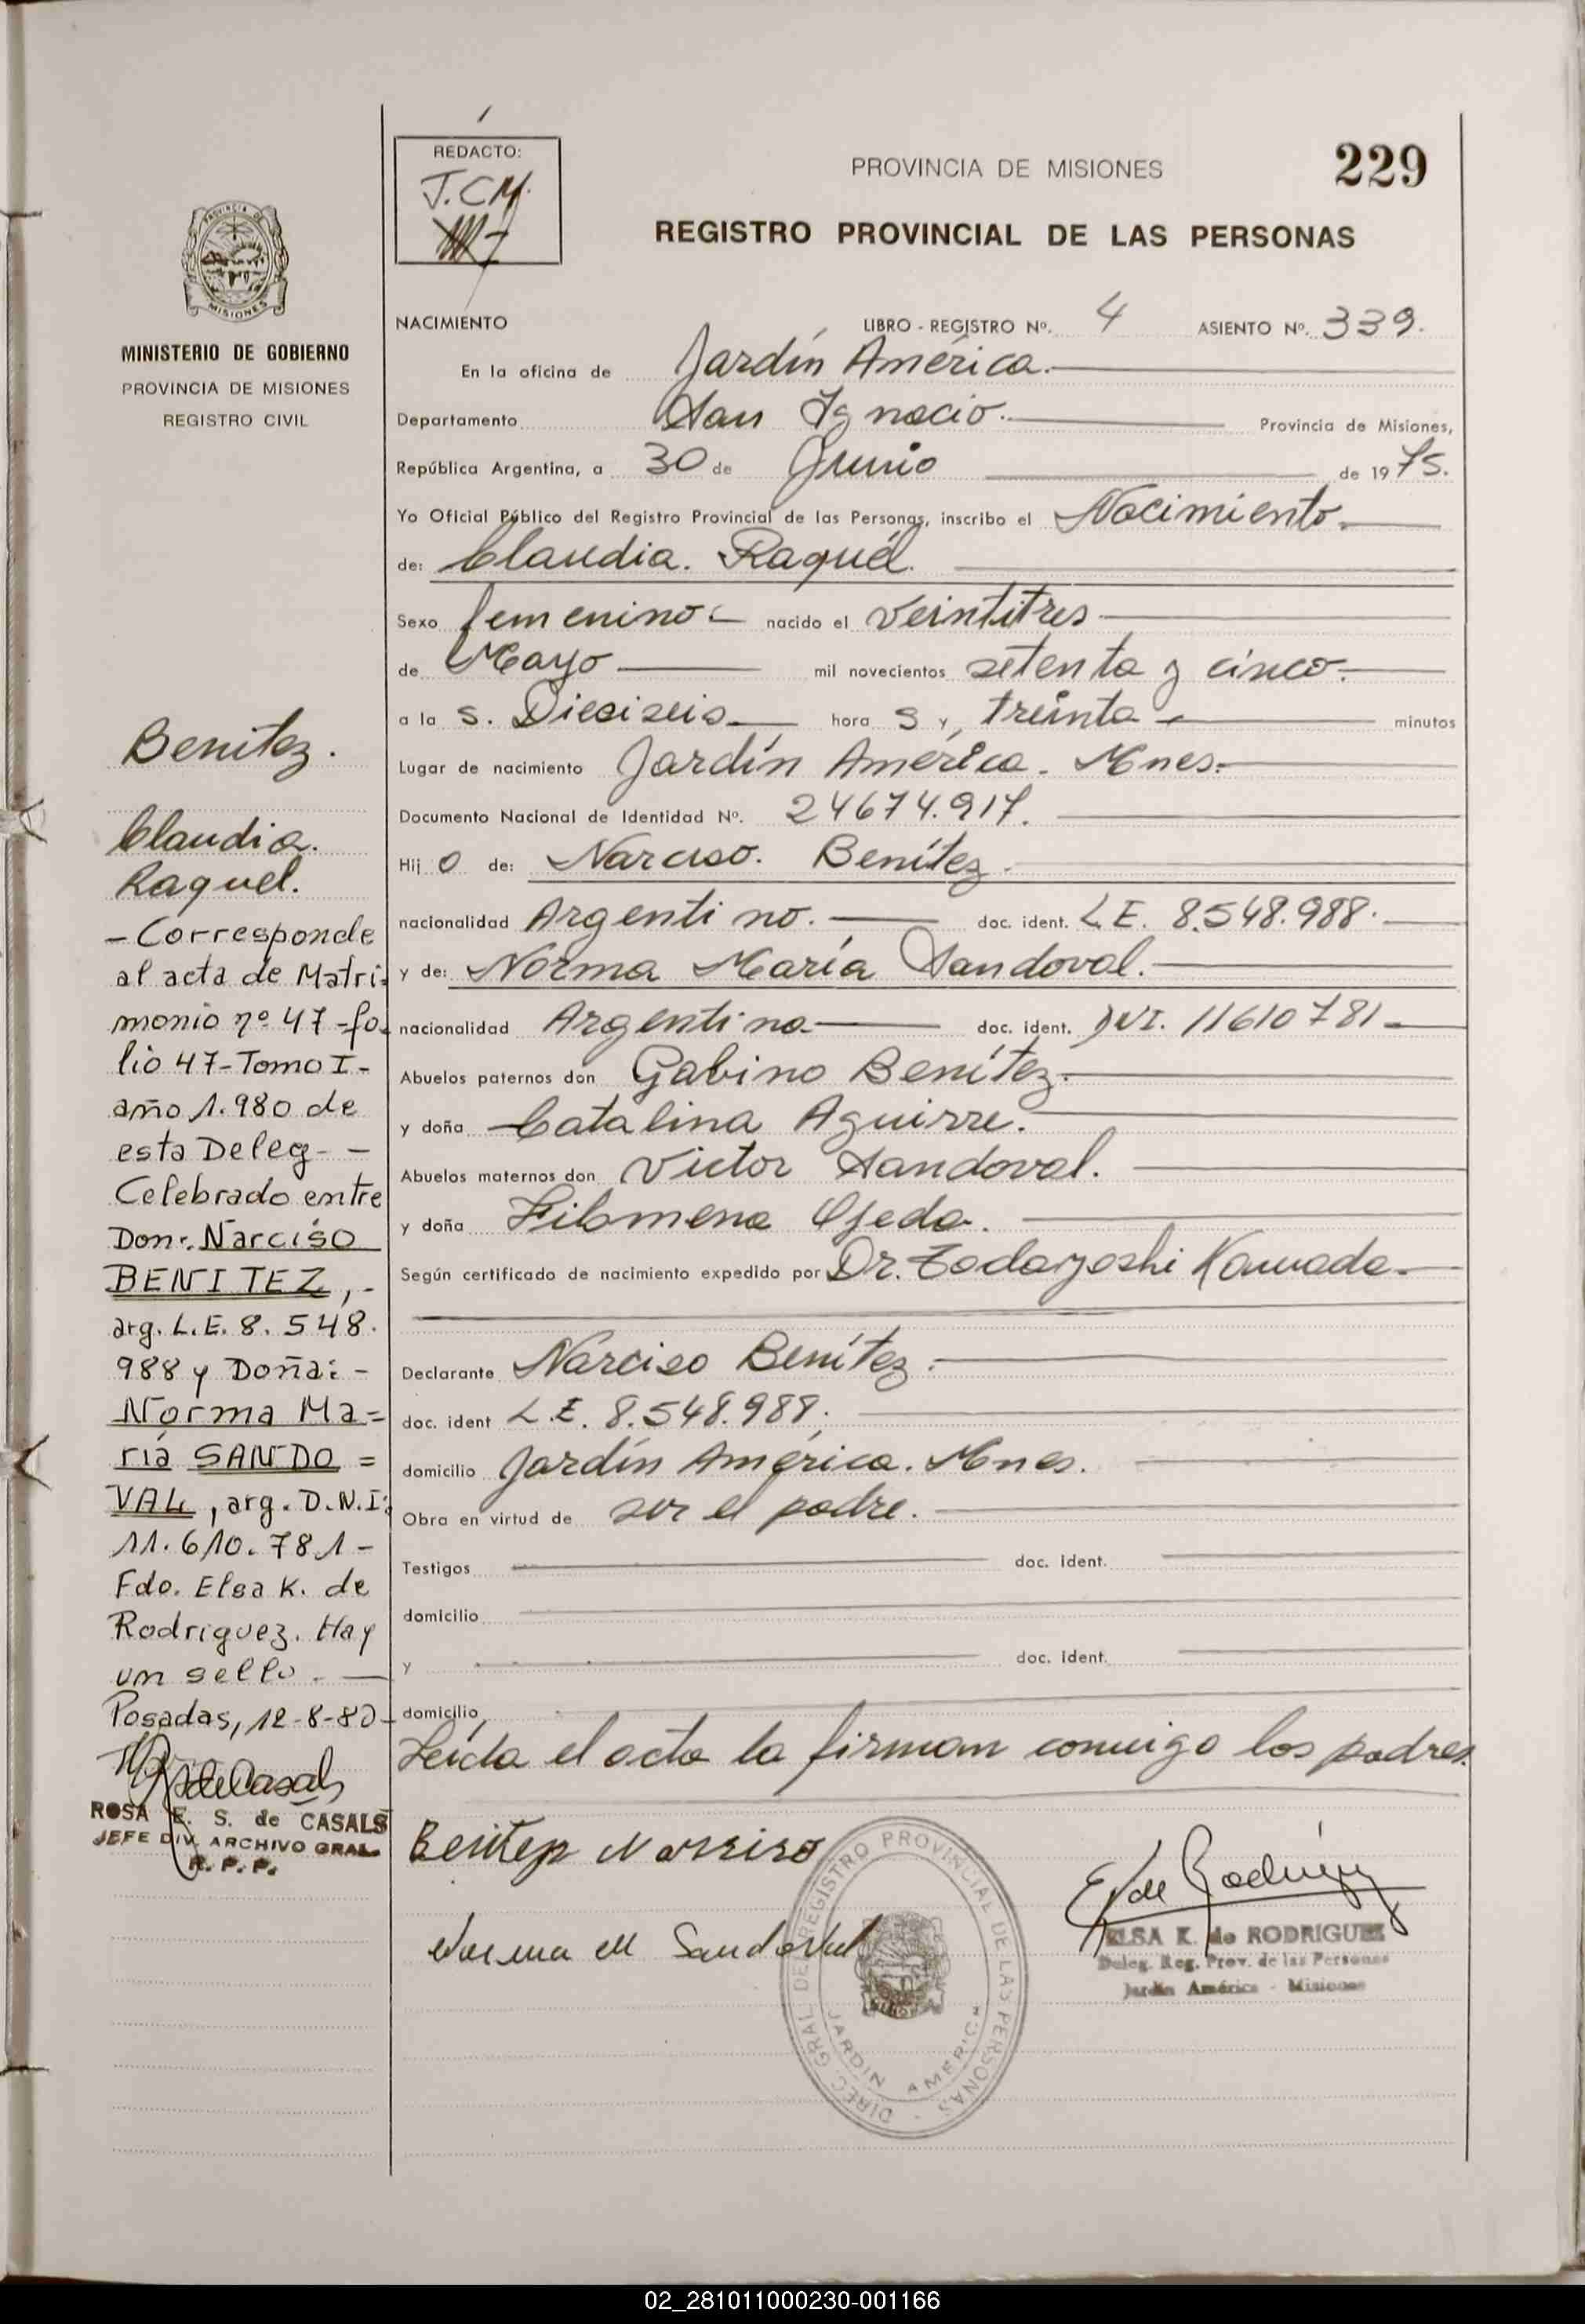 REDACTO:
J.C.M.
PROVINCIA DE MISIONES
229
REGISTRO PROVINCIAL DE LAS PERSONAS
PROVINCIA DE
MISIONES
MINISTERIO DE GOBIERNO
PROVINCIA DE MISIONES
REGISTRO CIVIL
NACIMIENTO LIBRO - REGISTRO Nº. 4 ASIENTO Nº. 339.
En la oficina de Jardín América.
Departamento San Ignacio. Provincia de Misiones,
República Argentina, a 30 de Junio de 1975.
Yo Oficial Público del Registro Provincial de las Personas, inscribo el Nacimiento.
de: Claudia. Raquél.
Sexo femenino nacido el veintitres
de Mayo mil novecientos setenta y cinco.
a la s. Dieciseis hora s y, treinta minutos
Lugar de nacimiento Jardín América. Mnes.
Documento Nacional de Identidad Nº. 24674.917.
Hij o de: Narciso. Benítez.
nacionalidad Argentino. doc. ident. L.E. 8.548.988.
y de: Norma María Sandoval.
nacionalidad Argentina doc. ident. DNI. 11610781
Abuelos paternos don Gabino Benítez.
y doña Catalina Aguirre.
Abuelos maternos don Victor Sandoval.
y doña Filomena Ojeda.
Según certificado de nacimiento expedido por Dr. Kawada
Declarante Narciso Benítez.
doc. ident L.E. 8.548.988.
domicilio Jardín América. Mnes.
Obra en virtud de ser el padre.
Testigos doc. ident.
domicilio
y doc. ident.
domicilio
Leída el acta la firman conmigo los padres.
Benitez Narciso
Norma M Sandoval
DIREC. GRAL. DE REGISTRO PROVINCIAL DE LAS PERSONAS
JARDIN AMERICA
E K de Rodriguez
ELSA K. de RODRIGUEZ
Deleg. Reg. Prov. de las Personas
Jardín América - Misiones
Benitez.
Claudia.
Raquel.
- Corresponde
al acta de Matri-
monio nº 47 - fo-
lio 47 - Tomo I -
año 1.980 de
esta Deleg- -
Celebrado entre
Don: Narciso
BENITEZ, -
arg. L.E. 8.548.
988 y Doña: -
Norma Ma=
ría SANDO=
VAL, arg. D.N.I:
11.610.781 -
Fdo. Elsa K. de
Rodriguez. Hay
un sello. -
Posadas, 12-8-80-
ROSA E. S. de CASALS
JEFE DIV. ARCHIVO GRAL.
R. P. P.
02_281011000230-001166